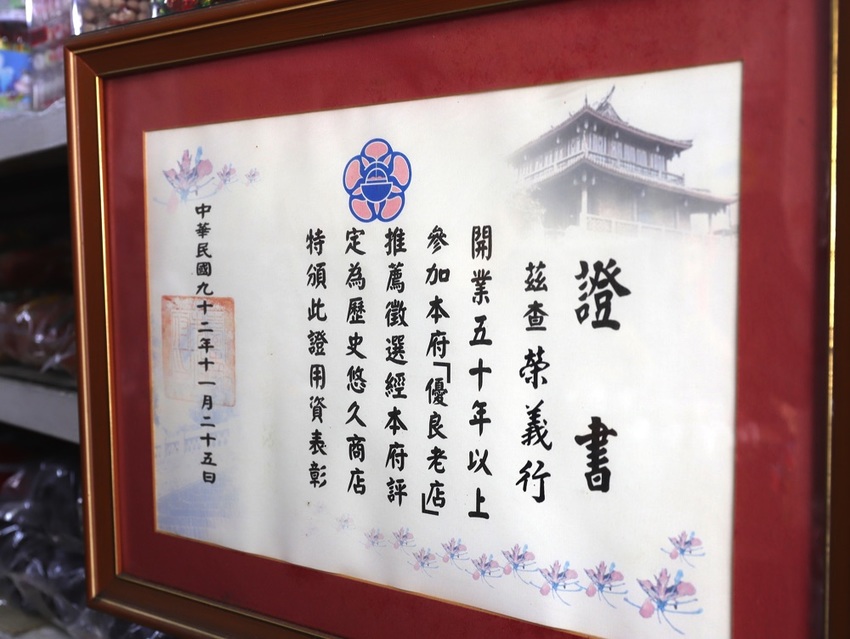 證書
茲查榮義行
開業五十年以上
參加本府「優良老店」
推薦徵選經本府評
定為歷史悠久商店
特頒此證用資表彰
中華民國九十二年十一月二十五日